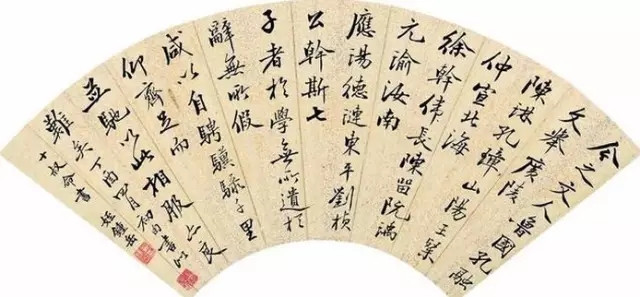 今之文人魯國孔融
文舉廣陵
陳琳孔璋山陽王粲
仲宣北海
徐幹偉長陳留阮瑀
元瑜汝南
應瑒德璉東平劉楨
公幹斯七
子者於學無所遺於
辭無所假
咸以自騁驥騄千里
仰齊足而
並馳以此相服亦良
難矣丁酉四月初書以
十叔命書 姪鍾岳